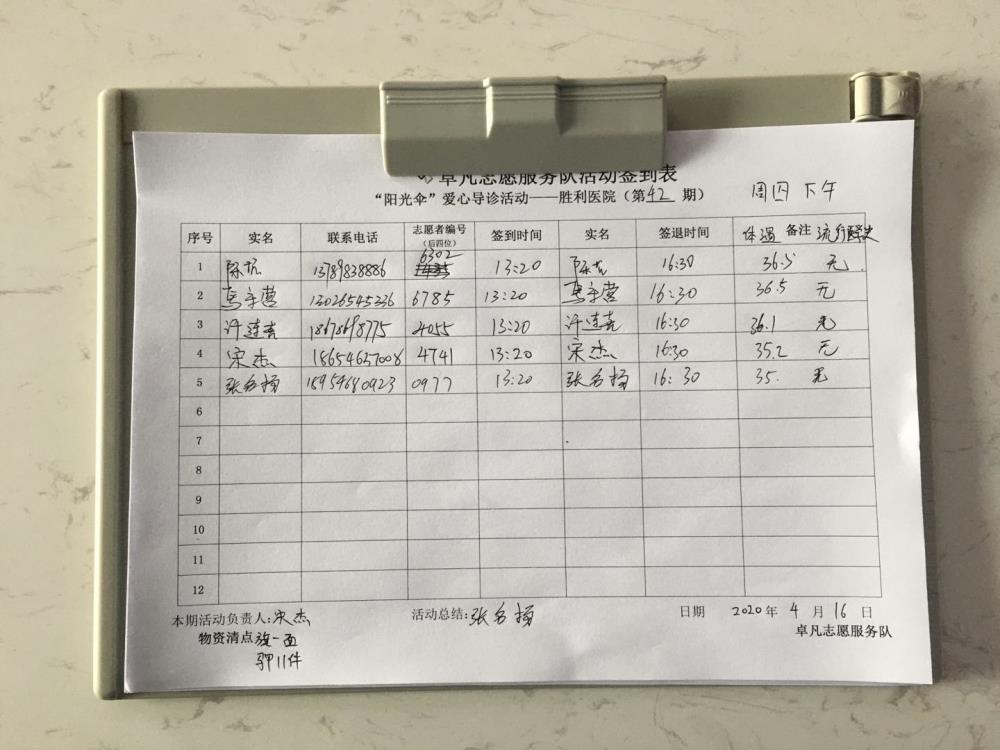 卓凡志愿服务队活动签到表
“阳光伞”爱心导诊活动——胜利医院（第42期） 周四 下午
序号 实名 联系电话 志愿者编号（后四位） 签到时间 实名 签退时间 体温 备注 流行病史
1 陈抗 13789838886 6302 13:20 陈抗 16:30 36.5 无
2 13026545236 6785 13:20 16:30 36.5 无
3 许连吉 18678698775 4055 13:20 许连吉 16:30 36.1 无
4 宋杰 18654657008 4741 13:20 宋杰 16:30 35.2 无
5 张名扬 18954680923 0977 13:20 张名扬 16:30 35. 无
6
7
8
9
10
11
12
本期活动负责人:宋杰 活动总结:张名扬 日期 2020年 4月16日
物资清点 旗一面 卓凡志愿服务队
11件